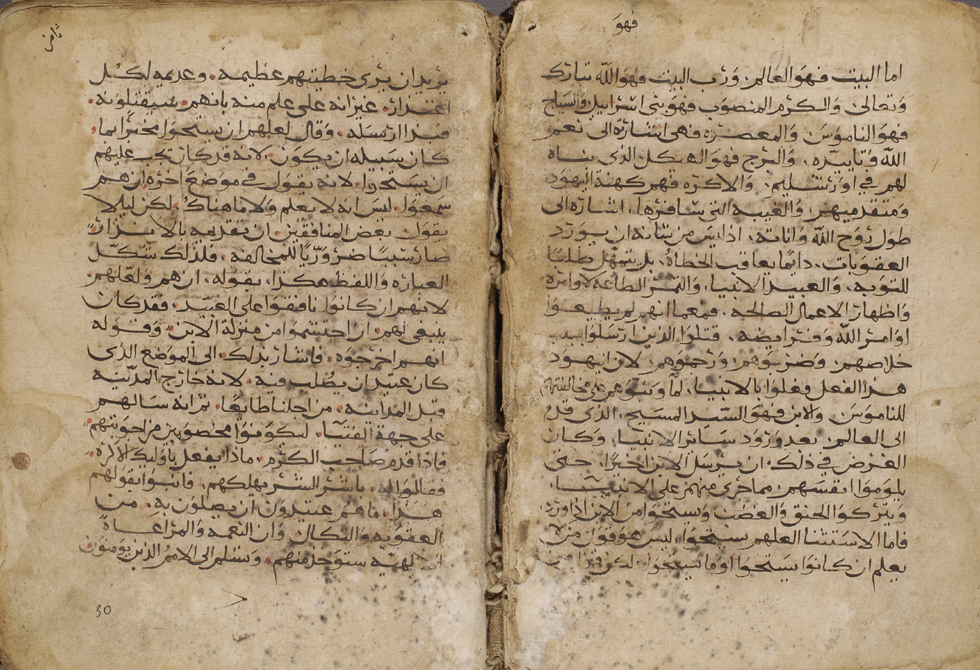 فهو
اما البيت فهو العالم. وَرَب البيت فهو الله تبارَك
وَتعالى وَالكرم المنصوب فهو بني اسرَاييل وَالسياج
فهو الناموس وَالمعصرَه فهى اشارَه الى نعم
الله وتاييده. وَالبرج فهو الهيكل الذي بناه
لهم في اورشليم. وَالاكرَه فهم كهنة اليهود
ومتقدميهم. وَالغيبه التي سافرها. اشارَه الى
طول رَوح الله وَاناته. اذ ليس من شانه ان يورَد
العقوبات. دايما يعاقب الخطاه. بل يتمهل طلبا
للتوبه. وَالعبيد الانبيا. وَالثمر الطاعه لاوَامرَه
وَاظهار الاعمال الصالحه. فمع انهم لم يطيعوا
اوَامر الله وَفرَايضه. قتلوا الذين ارسَلوا بسبب
خلاصهم. وَضربوهم وَرَجموهم لان اليهود
هذا الفعل فعلوا بالانبيا. لما وبخوهم على مخالفتهم
للناموس. وَالابن فهو السَيد المسيح. الذي قدم
الى العالم. بعد وَرود سَاير الانبيا. وَكان
الغرض في ذلك. ان يرسَل الابن اخيرا. حتى
يلوموا انفسَهم. مما جرى منهم على الانبيا.
وَيتركوا الحنق وَالغضب وَيستحيوا من الابن اذا وَرَد
فاما الاستثنا لعلهم يستحيوا. ليس هو قول من لا
يعلم ان كانوا يستحيوا او ما يستحيوا. لكن
يريد ان يرى خطيتهم عظيمه. وعديمه لكل
اعتذار. غير انه على علم منه بانهم سيقتلونه
قد ارسَله. وَقال لعلهم ان يستحيوا مخبرا بما
كان سبيله ان يكون. لانه قد كان يجب عليهم
ان يستحيوا. لانه يقول في موضع اخر ان هم
سمعوا. ليس انه لا يعلم ولا هناك. لكن ليلا
يقول بعض المنافقين. ان تقدمه بالانذار
صار سببا ضروريا للمخالفه. فلذلك شكل
العباره وَاللفظ هكذا. بقوله. ان هم ولعلهم
لانهم ان كانوا نافقوا على العبيد. فقد كان
ينبغى لهم. ان يحتشموا من منزلة الابن. وَقوله
انهم اخرجوه. فاشار بذلك الى الموضع الذي
كان عتيد ان يصلب فيه. لانه خارج المدينه
قبل المدينه. من اجلنا طايعا. ثم انه سَالهم
على جهة الفتيا. ليكونوا مخصومين من اجوبتهم
فاذا قدم صاحب الكرم. ماذا يفعل باوليك الاكره
فقالوا له. باشر الشر يهلكهم. فانبوا بقولهم
هذا. ما هم عتيدون ان يصلون به. من
العقوبه وَالنكال وَان النعمه وَالمراعاة
الالهيه ستوخذ منهم. وَستسلم الى الامم الذين يومنون
30